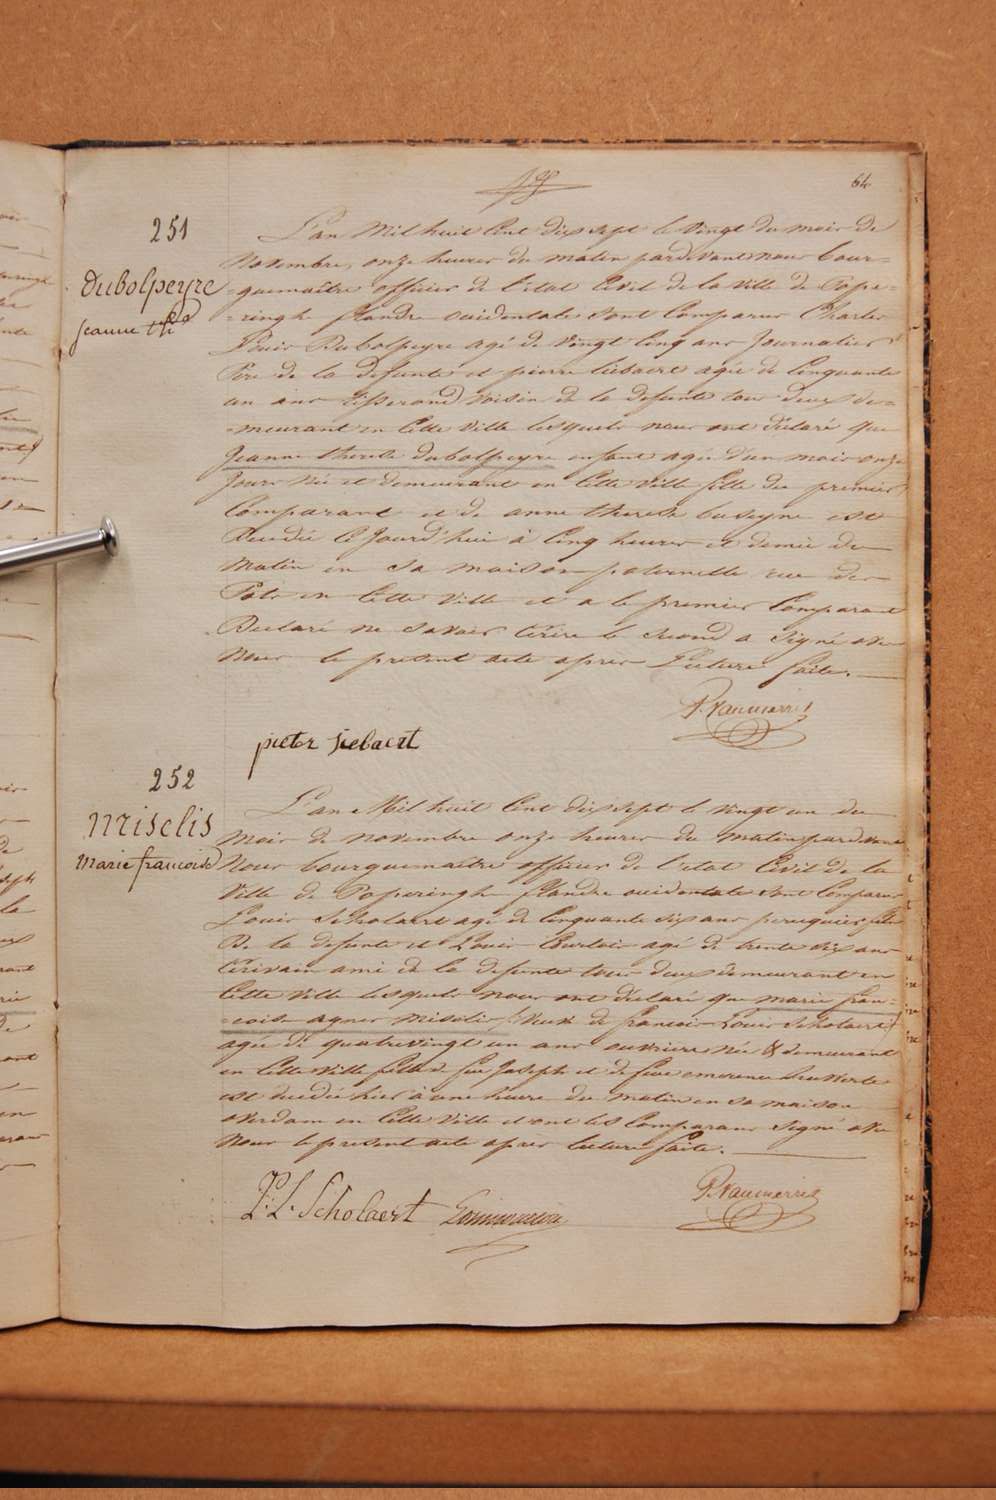 64
251
Dubolpeyre
Jeanne th
L'an Mil huit Cent dixsept le Vingt du mois de
Novembre, onze heures du matin pardevant nous bour-
-guemaître officier de l'état Civil de la Ville de Pope-
-ringhe flandre occidentale sont Comparus Charles
Louis Dubolpeyre agé de Vingt Cinq ans Journalier
Père de la défunte et pierre liebaert agé de Cinquante
un ans tisserand Voisin de la defunte tous deux de-
-meurant en Cette Ville lesquels nous ont déclaré que
Jeanne therese dubolpeyre enfant agée d'un mois onze
Jours Née et demeurant en Cette Ville fille du premier
Comparant et de anne therese est
Decedée Ce Jourd'hui à Cinq heures et demie du
Matin en sa maison paternelle rue des
Pots en Cette Ville et a le premier Comparant
Declaré ne savoir Ecrire le second a signé avec
Nous le present acte apres Lecture faite.
P. Vanmerris
pieter liebaert
252
Miselis
Marie francoise
L'an Mil huit Cent dixsept le vingt un du
Mois de novembre onze heures du matin pardevant
Nous bourguemaître officier de l'etat Civil de la
Ville de Poperinghe flandre occidentale sont Comparus
Louis Scholaert agé de Cinquante six ans perruquier fils
De la defunte et Louis agé de trente six ans
Ecrivain ami de la defunte tous deux demeurant en
Cette Ville lesquels nous ont déclaré que marie fran-
-coise agnes miselis (Veuve de francois Louis Scholaert)
agée de quatrevingt un ans ouvriere née & demeurant
en Cette Ville fille de feu Joseph et de feue
est decedée hier à une heure du matin en sa maison
overdam en Cette Ville et ont les Comparans signé avec
Nous le present acte apres lecture faite.
P. L. Scholaert
P. Vanmerris